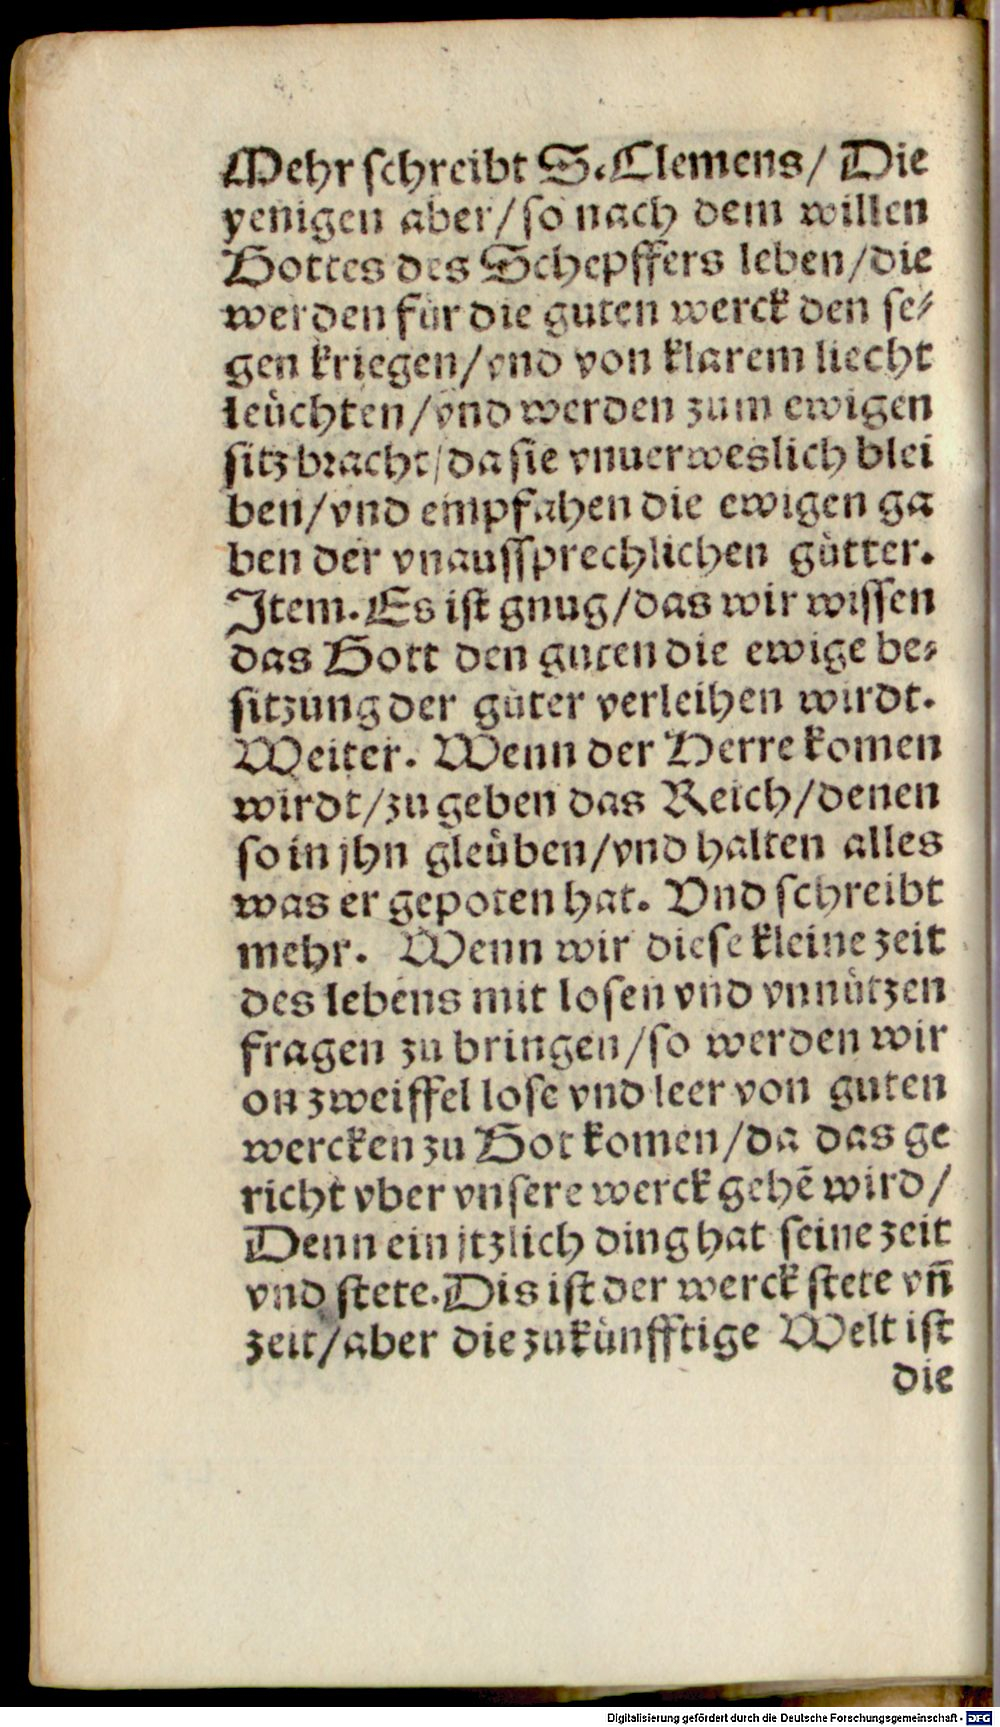 Mehr schreibt S. Clemens/ Die
yenigen aber/so nach dem willen
Gottes des Schepffers leben/die
werden fur die guten werck den se⸗
gen kriegen/vnd von klarem liecht
leüchten/vnd werden zum ewigen
sitz bracht/da sie vnuerweslich blei
ben/vnd empfahen die ewigen ga
ben der vnaussprechlichen gütter.
Item. Es ist gnug/das wir wissen
das Gott den guten die ewige be⸗
sitzung der guter verleihen wirdt.
Weiter. Wenn der Herre komen
wirdt/zu geben das Reich/denen
so in jhn gleüben/vnd halten alles
was er gepoten hat. Vnd schreibt
mehr. Wenn wir diese kleine zeit
des lebens mit losen vnd vnnützen
fragen zu bringen/so werden wir
on zweiffel lose vnd leer von guten
wercken zu Got komen/da das ge
richt vber vnsere werck gehẽ wird/
Denn ein jtzlich ding hat seine zeit
vnd stete. Dis ist der werck stete vñ
zeit/aber die zukünfftige Welt ist
die
Digitalisierung gefördert durch die Deutsche Forschungsgemeinschaft - DFG